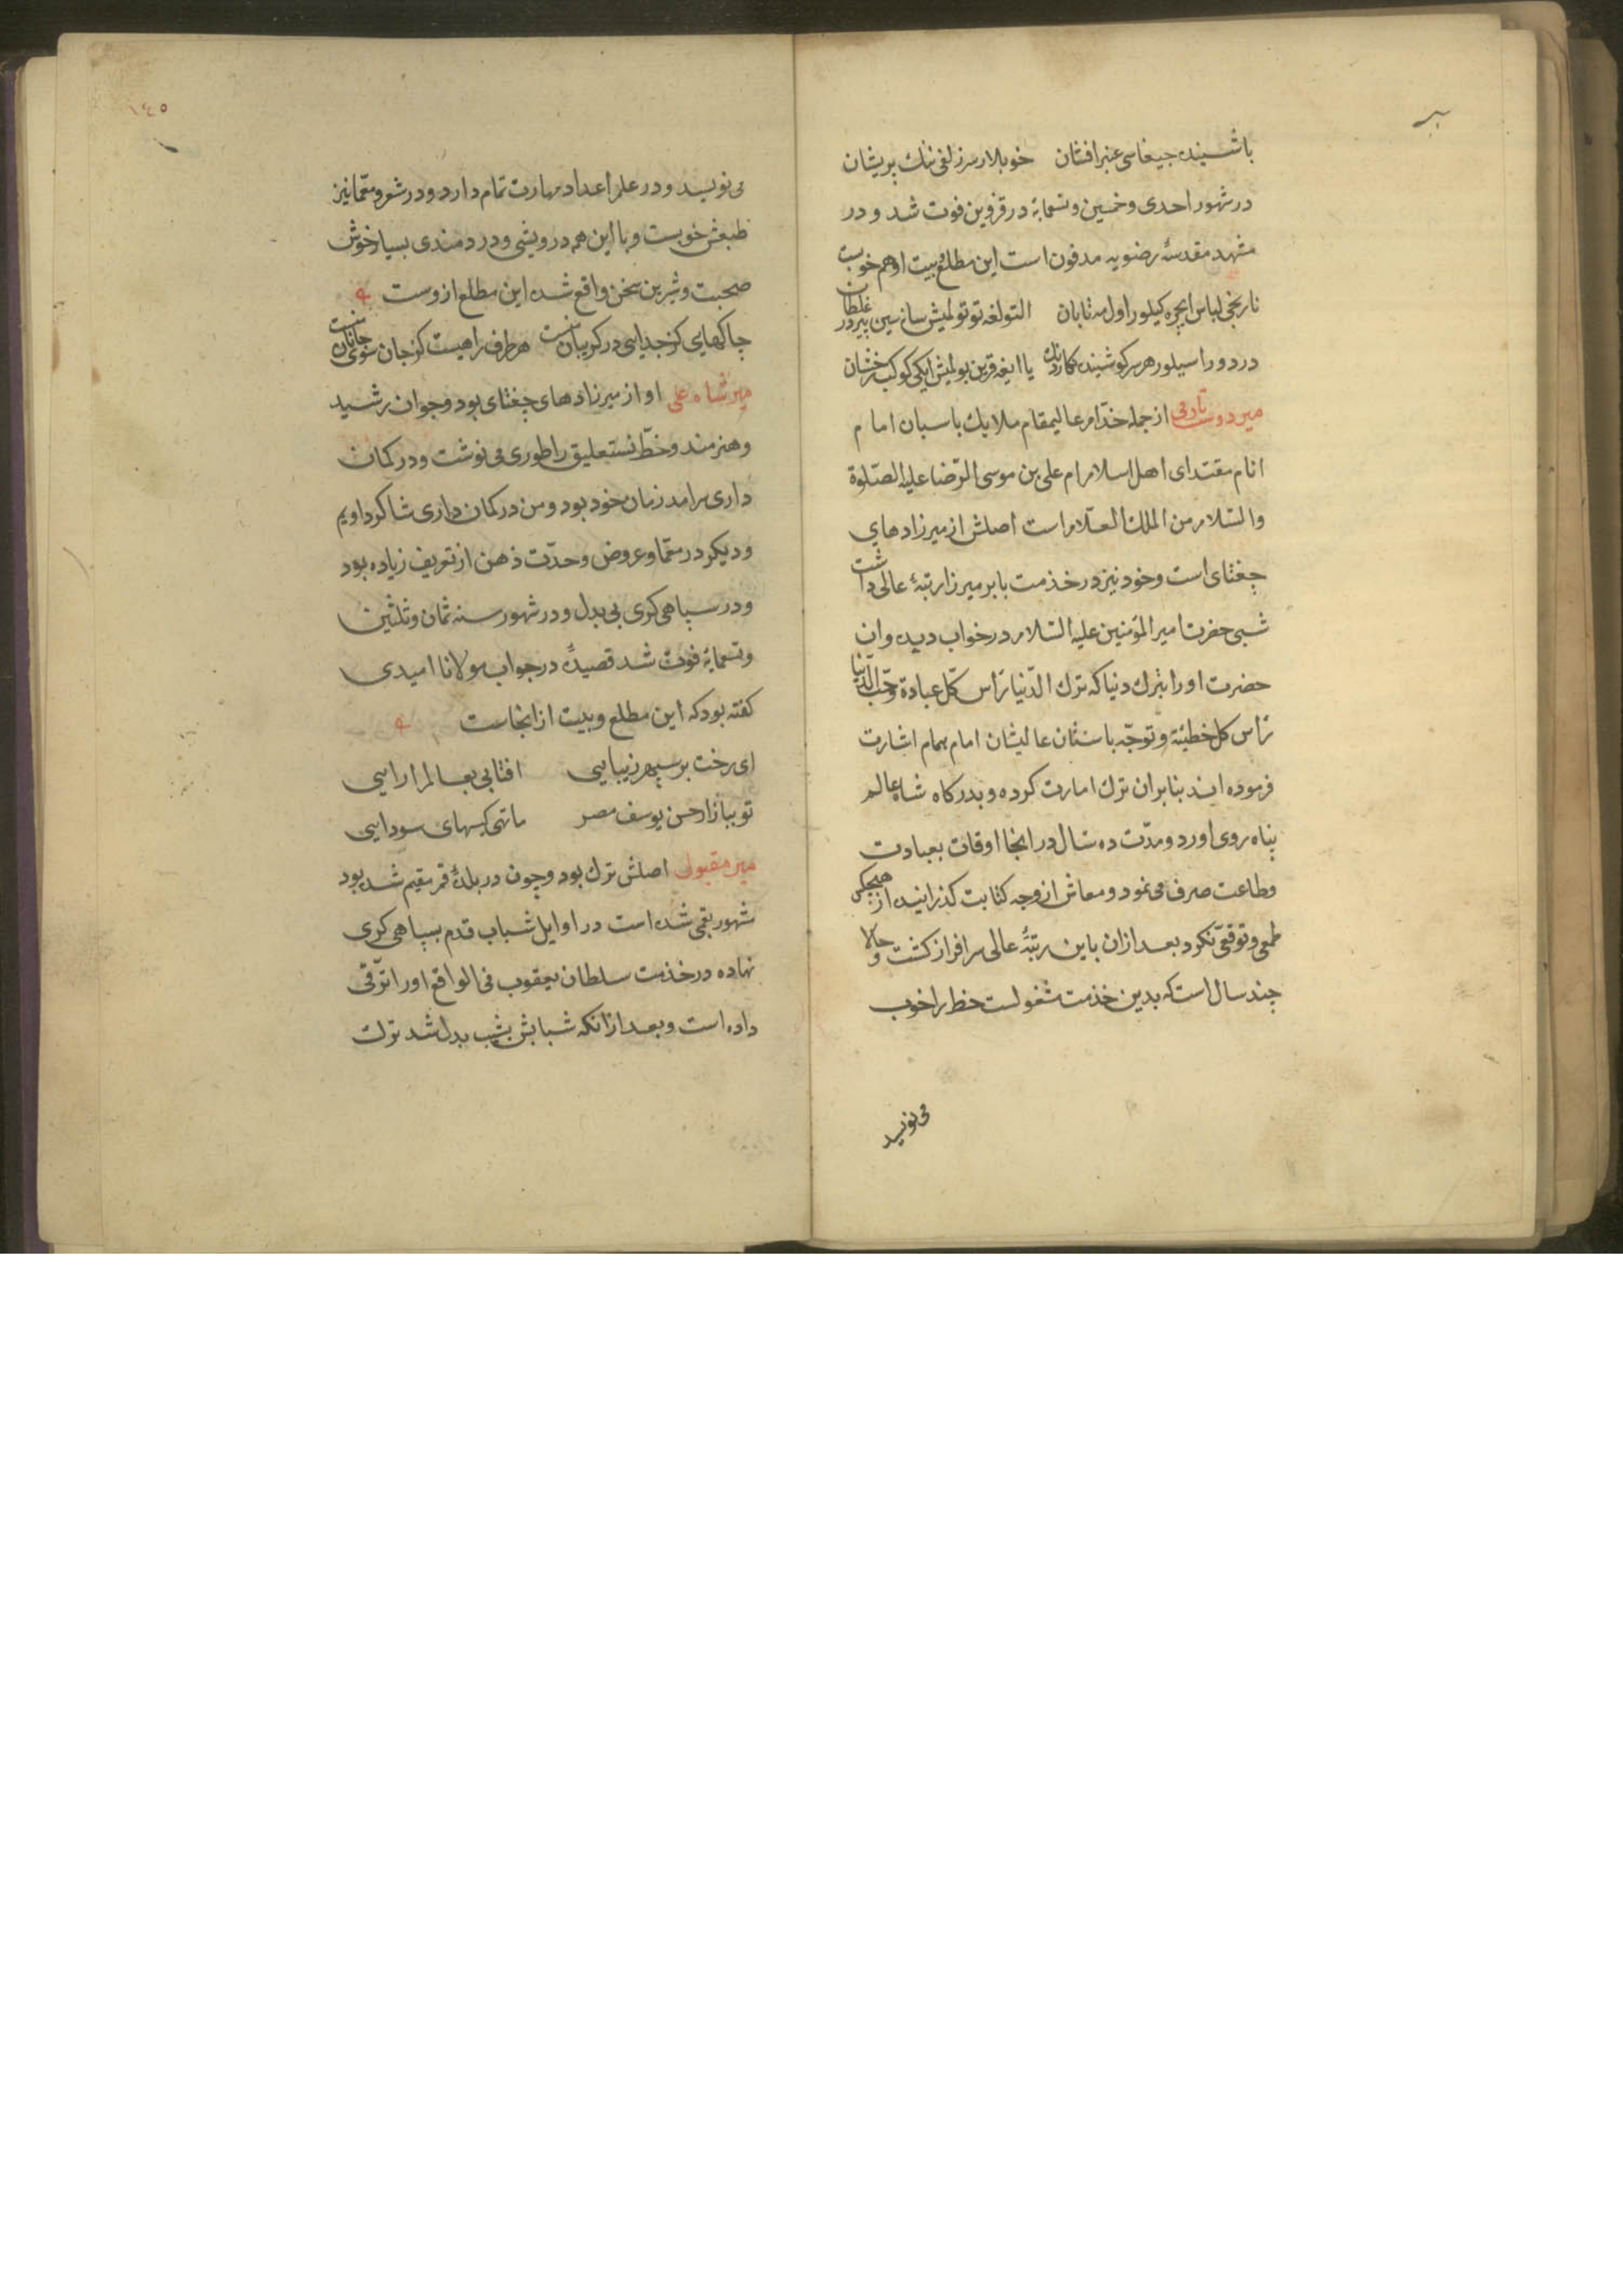 باشینده جیغاسی عنبر افشان خوبلار سر زلفی تنك پریشان
در شهور احدی وخمسین وتسعمایة در قزوین فوت شد ودر
مشهد مقدسهٔ رضویه مدفون است این مطلع وبیت او هم خوبست
نارنجی لباس ایچره کیلور اول مه تابان التونغه توتولمیش سانسین
در دور اسیلور هر سر کوشینده یا ایغه قرین بولمیش ایکی کوکب رخشان
میر دوست از جمله خدّام عالیمقام ملایك پاسبان امام
انام مقتدای اهل اسلام امام علی بن موسی الرّضا علیه الصّلوة
والسّلام من الملك العلّام است اصلش از میرزادهای
جغتای است وخود نیز در خذمت بابر میرزا رتبهٔ عالی داشت
شبی حضرت امیر المؤمنین علیه السّلام در خواب دیده وان
حضرت او را بترك دنیا که ترك الدّنیا راس کلّ عبادة وحبّ الدّنیا
راس کل خطیئة وتوجّه باستان عالیشان امام همام اشارت
فرموده اند بنابران ترك امارت کرده وبدرکاه شاه عالم
پناه روی اورد ومدّت ده سال در انجا اوقات بعبادت
وطاعت صرف می نمود ومعاش از وجه کتابت کذرانیده از هیچکس
طمعی وتوقعی نکرد بعد ازان باین رتبهٔ عالی سرافراز کشت وحالا
جند سال است که بدین خذمت مشغولست خط را خوب
می نویسد
١٤٥
می نویسد ودر علم اعداد مهارت تمام دارد ودر شعر ومعمّا نیز
طبعش خوبست وبا این همه درویشی ودردمندی بسیار خوش
صحبت وشیرین سخن واقع شده این مطلع ازوست
چاکهای کز جدایی در کریبان منست هر طرف راهیست کز جان سوی جانان منست
میر شاه علی او از میرزادهای جغتای بود وجوان رشید
وهنرمند وخطّ نستعلیق را طوری می نوشت ودر کمان
داری سرامد زمان خود بود ومن در کمان داری شاکرد اویم
ودیکر در معمّا وعروض وحدّت ذهن از تعریف زیاده بود
ودر سپاهی کری بی بدل ودر شهور سنه ثمان وثلثین
وتسعمایة فوت شد قصیدهٔ در جواب مولانا امیدی
کفته بود که این مطلع وبیت از انجاست
ای رخت بر سپهر زیبایی افتابی بعالم ارایی
تو ببازار حسن یوسف مصر ما تهی کیسهای سودایی
میر مقبول اصلش ترك بود وچون در بلدهٔ قم مقیم شده بود
شهور بقمی شده است در اوایل شباب قدم بسپاهی کری
نهاده در خذمت سلطان یعقوب فی الواقع او را ترّقی
داده است وبعد ازانکه شبابش بشیب بدل شد ترك